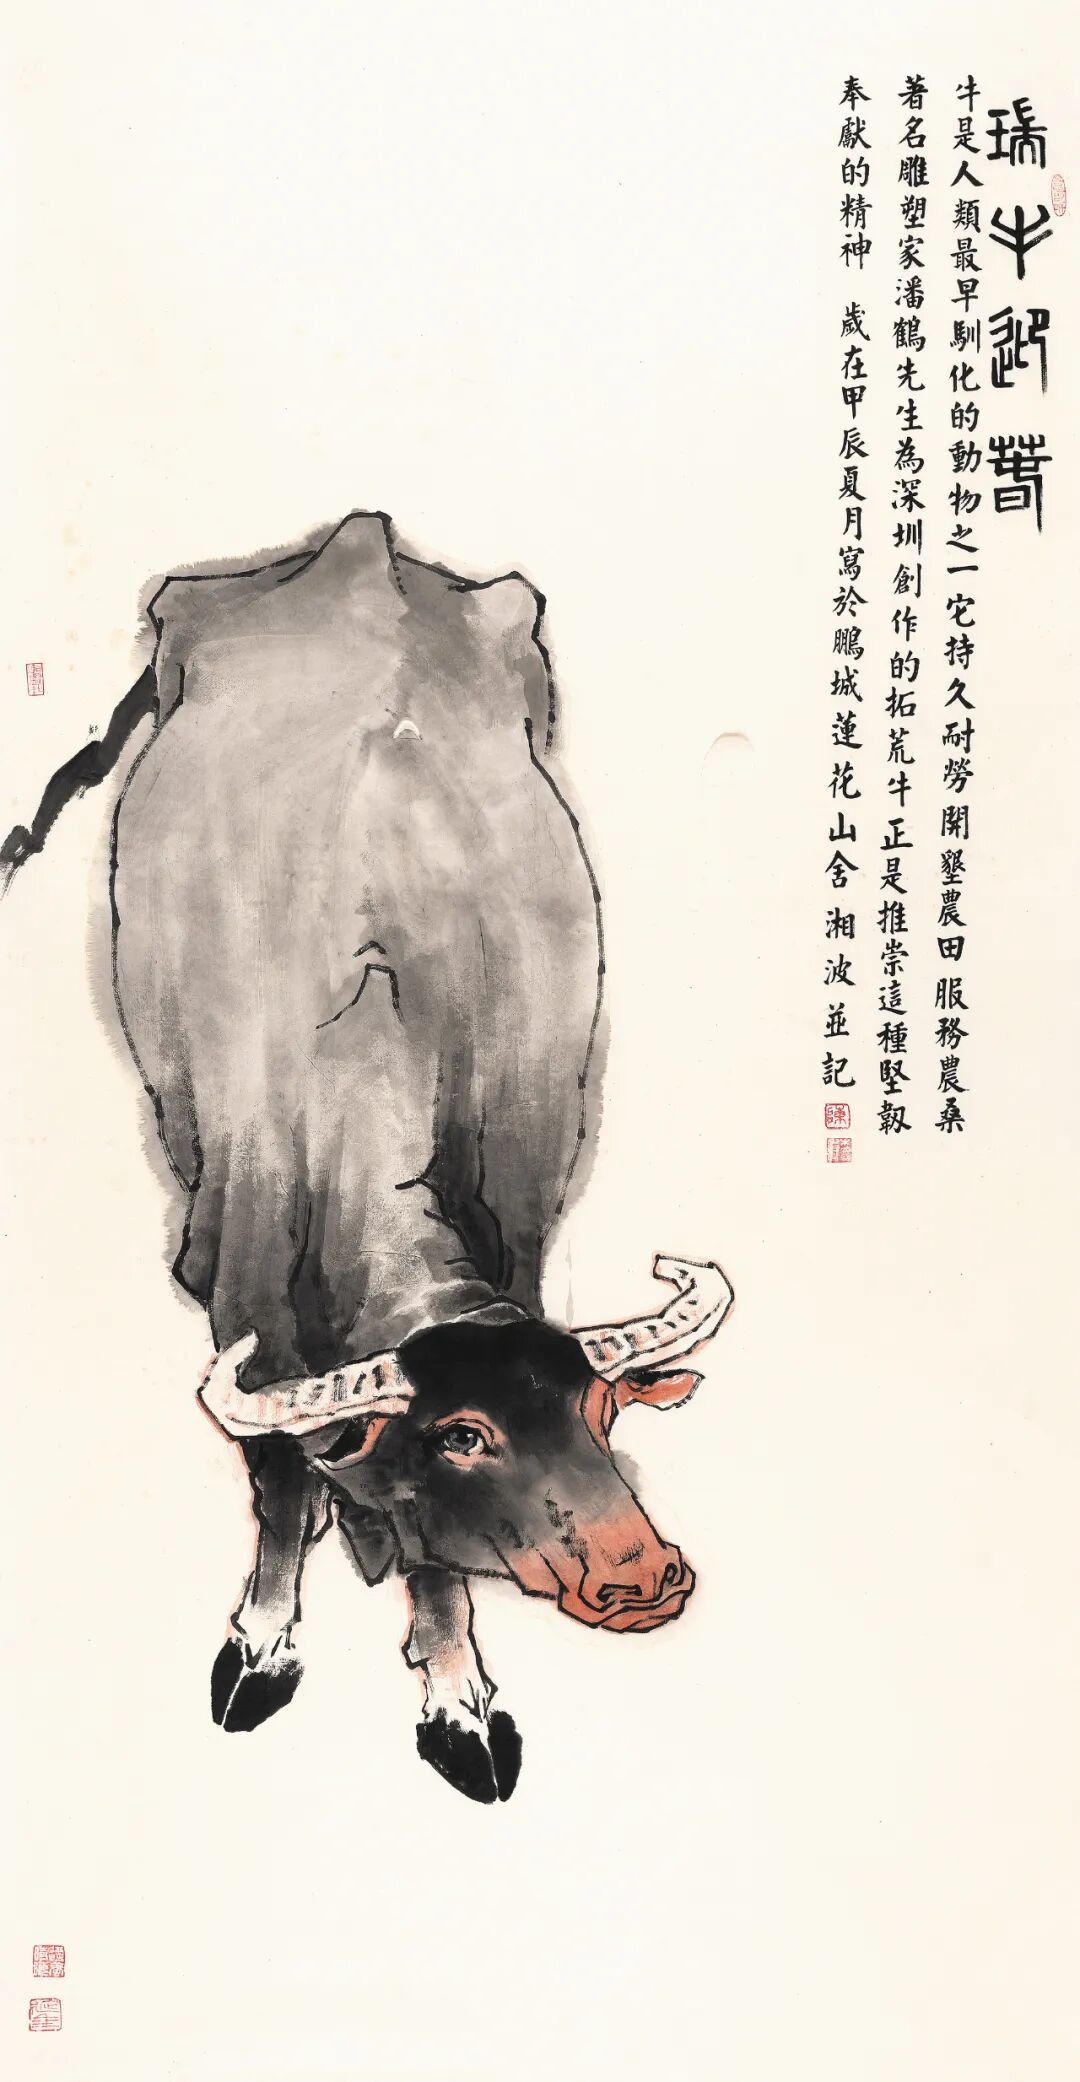 瑞牛迎春
牛是人類最早馴化的動物之一它持久耐勞開墾農田服務農桑
著名雕塑家潘鶴先生為深圳創作的拓荒牛正是推崇這種堅韌
奉獻的精神 歲在甲辰夏月寫於鵬城蓮花山舍湘波並記